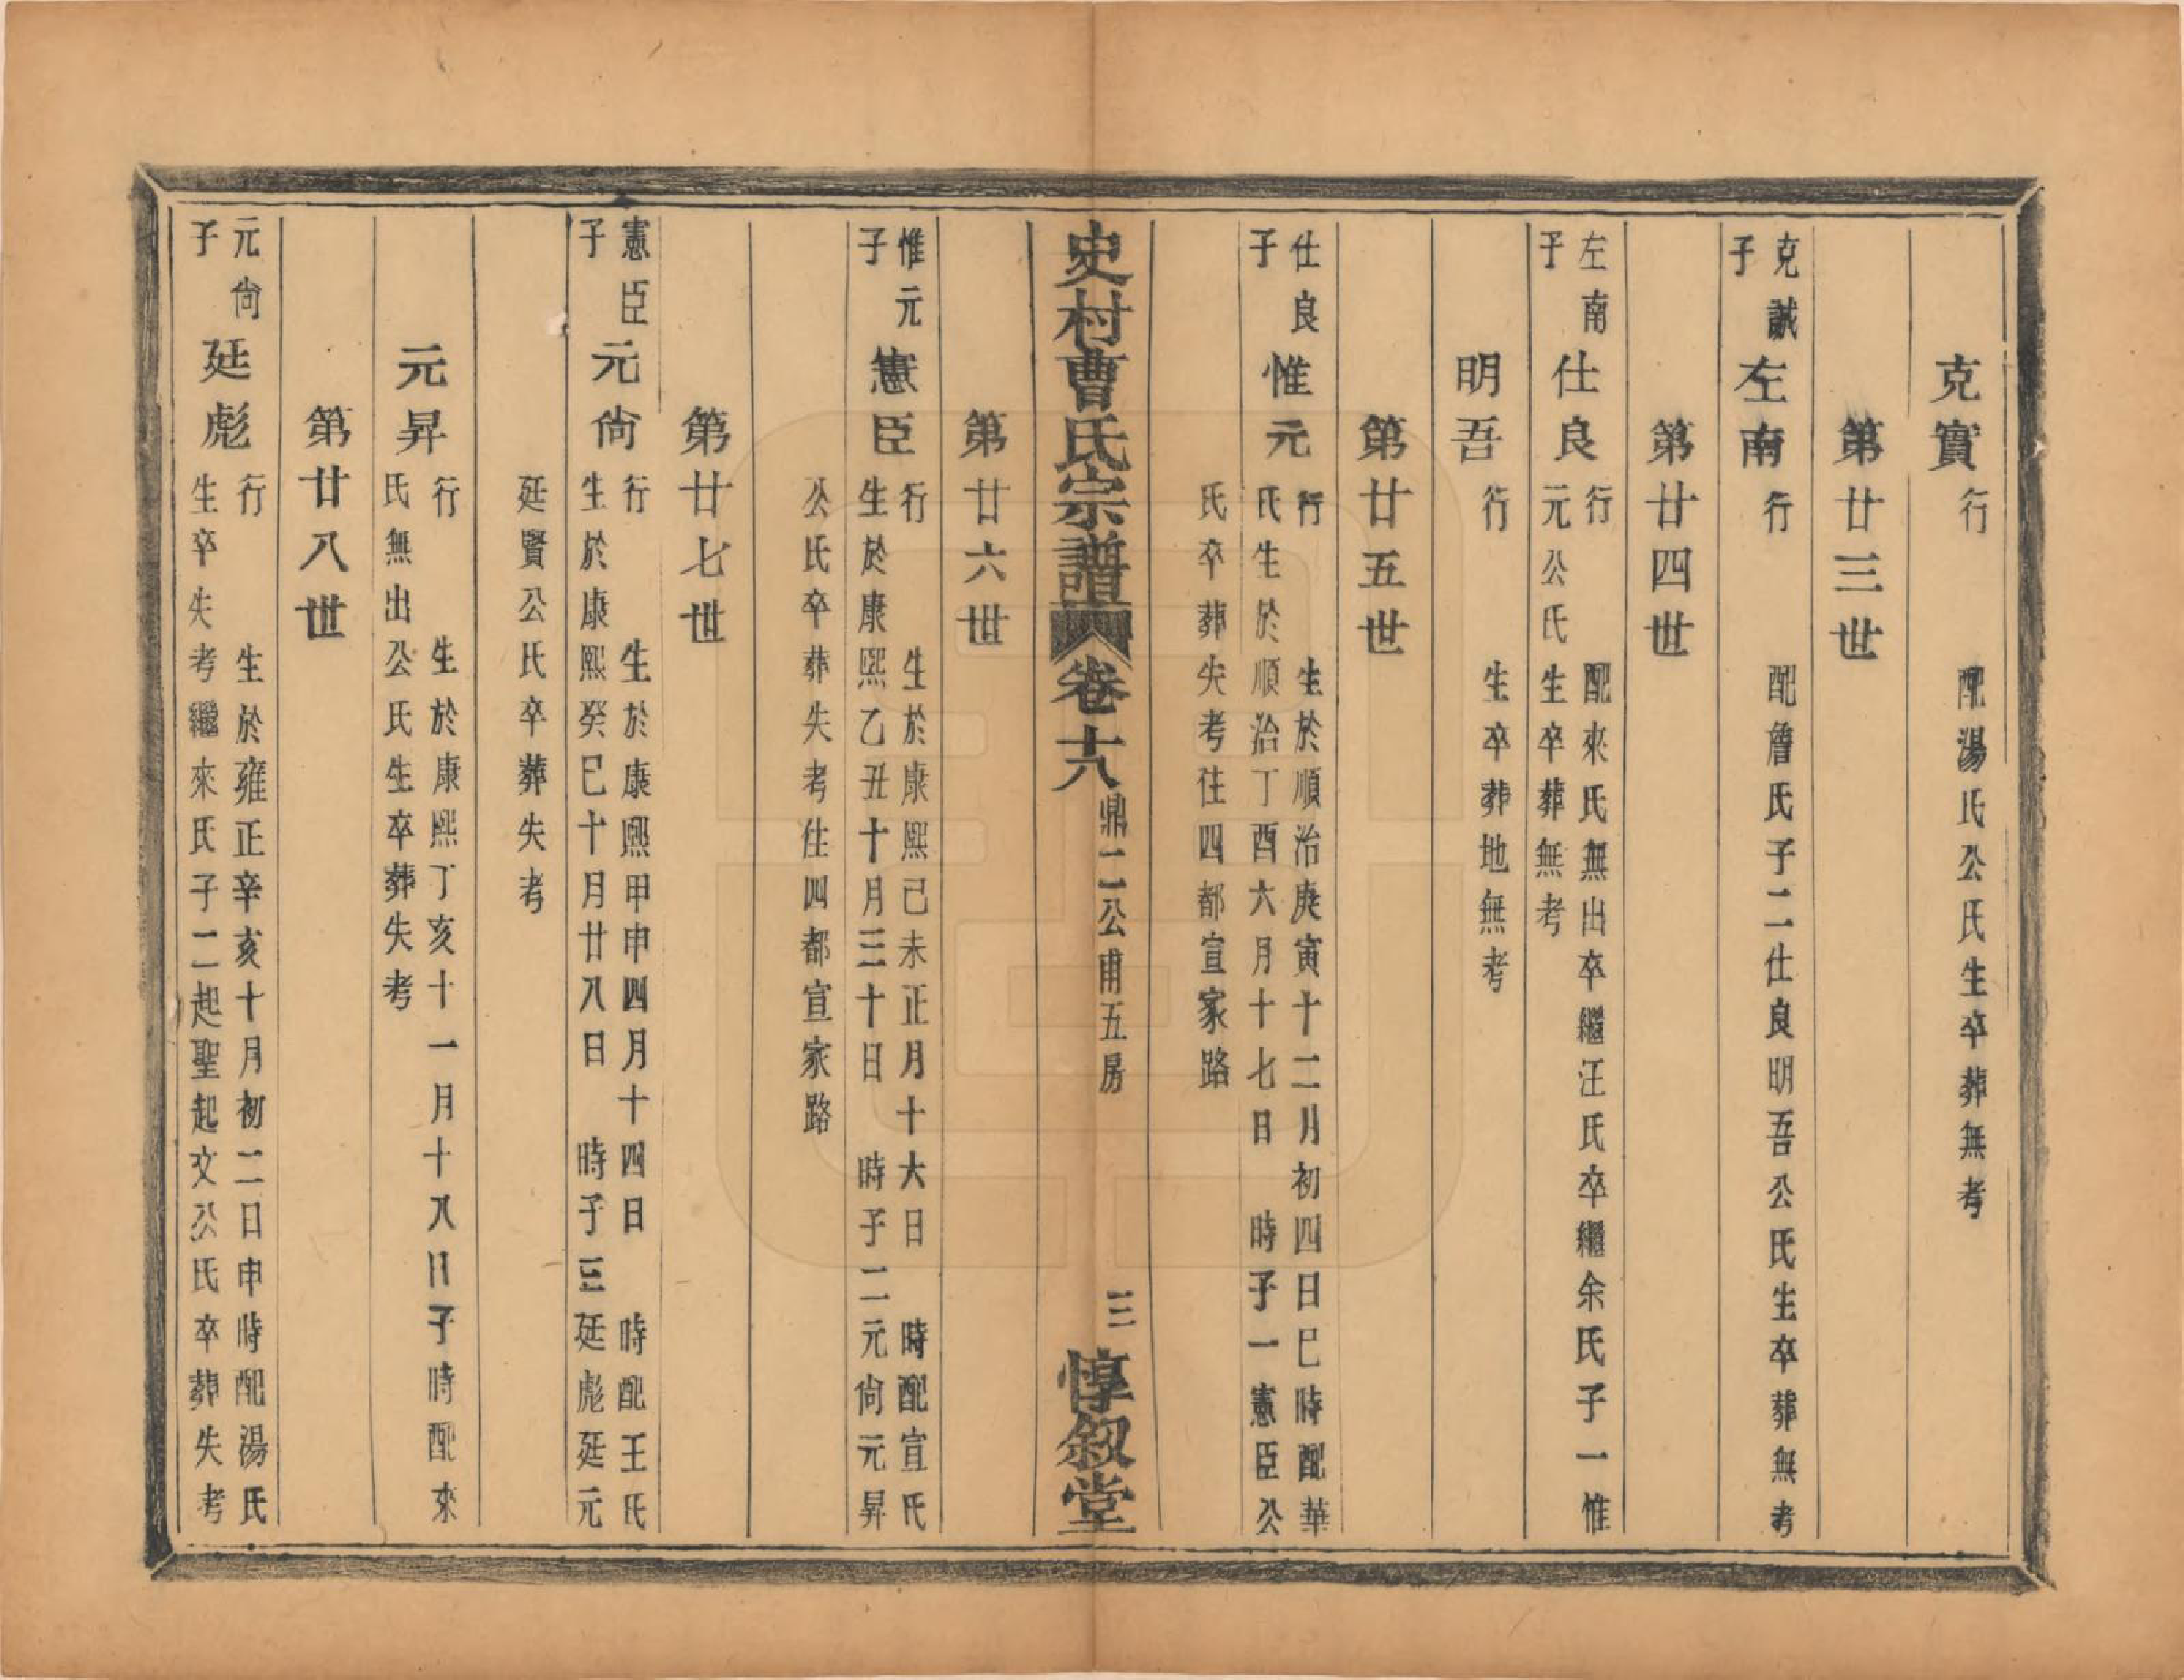 克實行　　配湯氏公氏生卒葬無考
第廿三世
克誠子
左南行　　配詹氏子二仕良明吾公氏生卒葬無考
第廿四世
左南子
仕良行　　配來氏無出卒繼汪氏卒繼余氏子一惟
元公氏生卒葬無考
明吾行　　生卒葬地無考
第廿五世
仕良子
惟元行　　生於順治庚寅十二月初四日巳時配華
氏生於順治丁酉六月十七日　時子一憲臣公
氏卒葬失考住四都宣家路
史村曹氏宗譜　卷十六　鼎二公甫五房　三　惇叙堂
第廿六世
惟元子
憲臣行　　生於康熙己未正月十六日　時配宣氏
生於康熙乙丑十月三十日　時子二元尙元昇
公氏卒葬失考住四都宣家路
第廿七世
憲臣子
元尙行　　生於康熙甲申四月十四日　時配王氏
生於康熙癸巳十月廿八日　時子三廷彪廷元
廷賢公氏卒葬失考
元昇行　　生於康熙丁亥十一月十八日子時配來
氏無出公氏生卒葬失考
第廿八世
元尙子
廷彪行　　生於雍正辛亥十月初二日申時配湯氏
生卒失考繼來氏子二起聖起文公氏卒葬失考